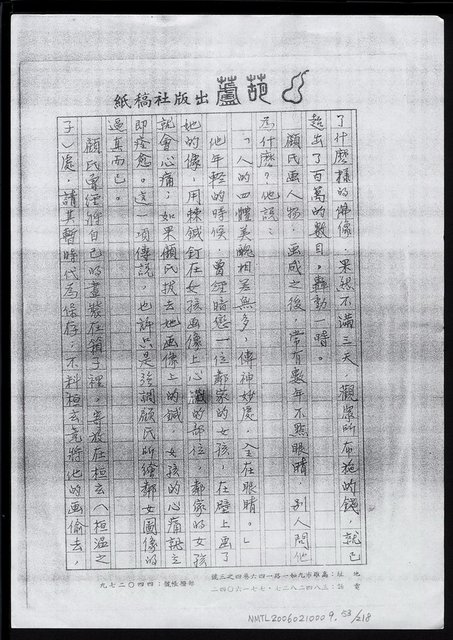 葫蘆出版社稿紙
了什麼樣的佛像，果然不滿三天，觀眾所布施的錢，就已
超出了百萬的數目。轟動一時。
顧氏畫人物，画成之後，常有數年不點眼睛，別人問他
為什麼？他說：
「人的四體美醜相差無多，傳神妙處，全在眼睛。」
他年輕的時候，曾經暗戀一位鄰家的女孩，在壁上画了
她的像，用棘鍼釘在女孩画像上心臟的部位，鄰家的女孩
就會心痛；如果顧氏拔去她画像上的鍼，女孩的心痛就立
即痊愈。這一項傳說，也許只是強調顧氏所繪鄰女圖像的
逼真而已。
顧氏曾經將自己的畫裝在箱子裡，寄放在桓玄（桓温之
子）處，請其暫時代為保存，不料桓玄竟將他的画偷去，
地址：高雄市九如一路一四六巷四之三號
電話：三八四二八二七．七七一六〇四二
郵撥帳號：四四〇二七九
NMTL20060210009 53/218